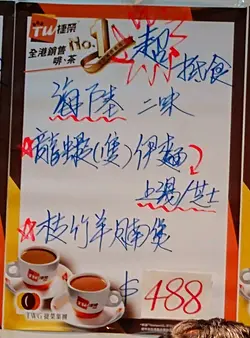 TW 捷榮
全港銷售 No.1
啡、茶
超抵食
海陸二味
☆龍蝦(隻)伊麵
上湯/芝士
☆枝竹羊腩煲
TWG 捷榮集團
$488